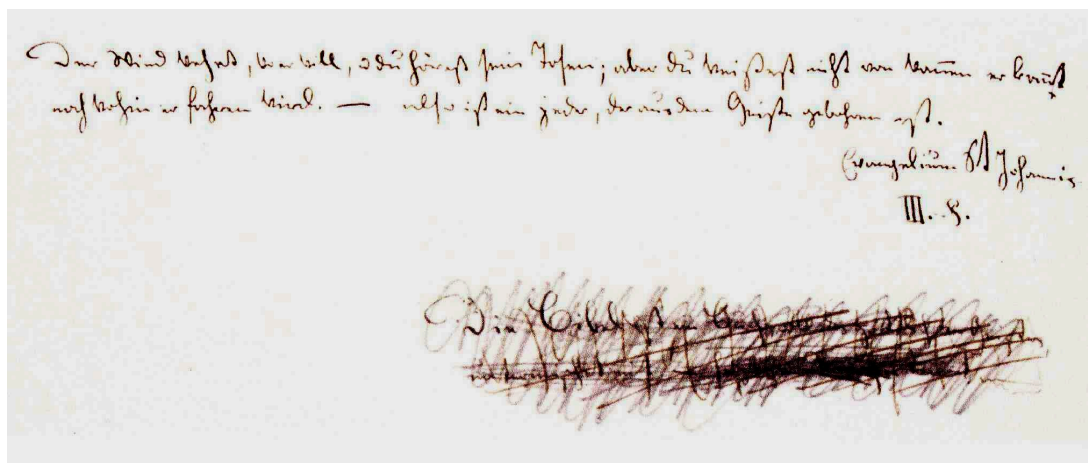 Der Wind wehet, wo er will, u du hörest sein Tosen; aber du weißest nicht von wannen er kommt
noch wohin er fahren wird. — also ist ein jeder, der aus dem Geiste gebohren ist.
Evangelium St Johannis
III. 8.
Die